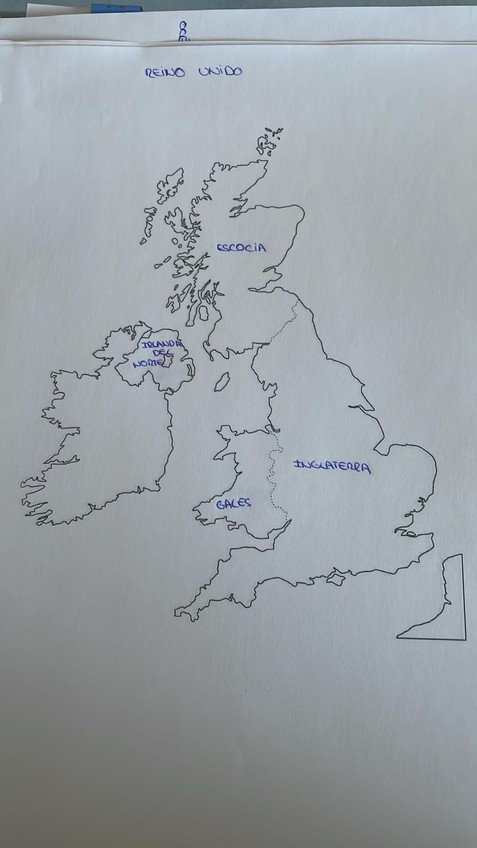 CCE
REINO UNIDO
ESCOCIA
IRLANDA
DEL
NORTE
INGLATERRA
GALES